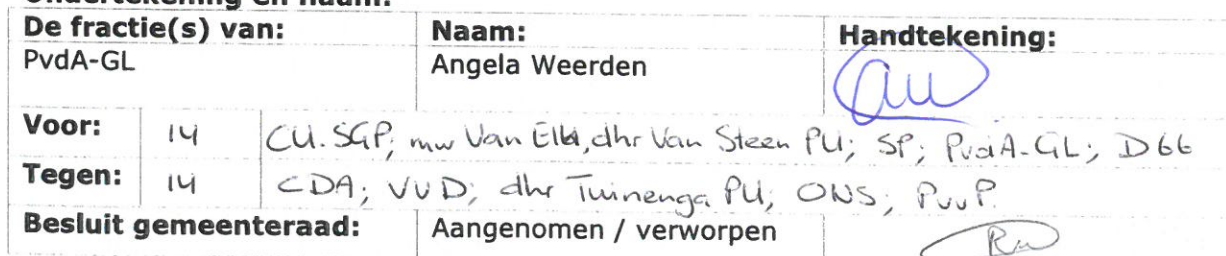 De fractie(s) van: Naam: Handtekening:
PvdA-GL Angela Weerden
Voor: 14 CU.SGP; mw Van Elk, dhr Van Steen PU; SP; PvdA-GL; D66
Tegen: 14 CDA; VVD; dhr Tuinenga PU; ONS; PvvP.
Besluit gemeenteraad: Aangenomen / verworpen